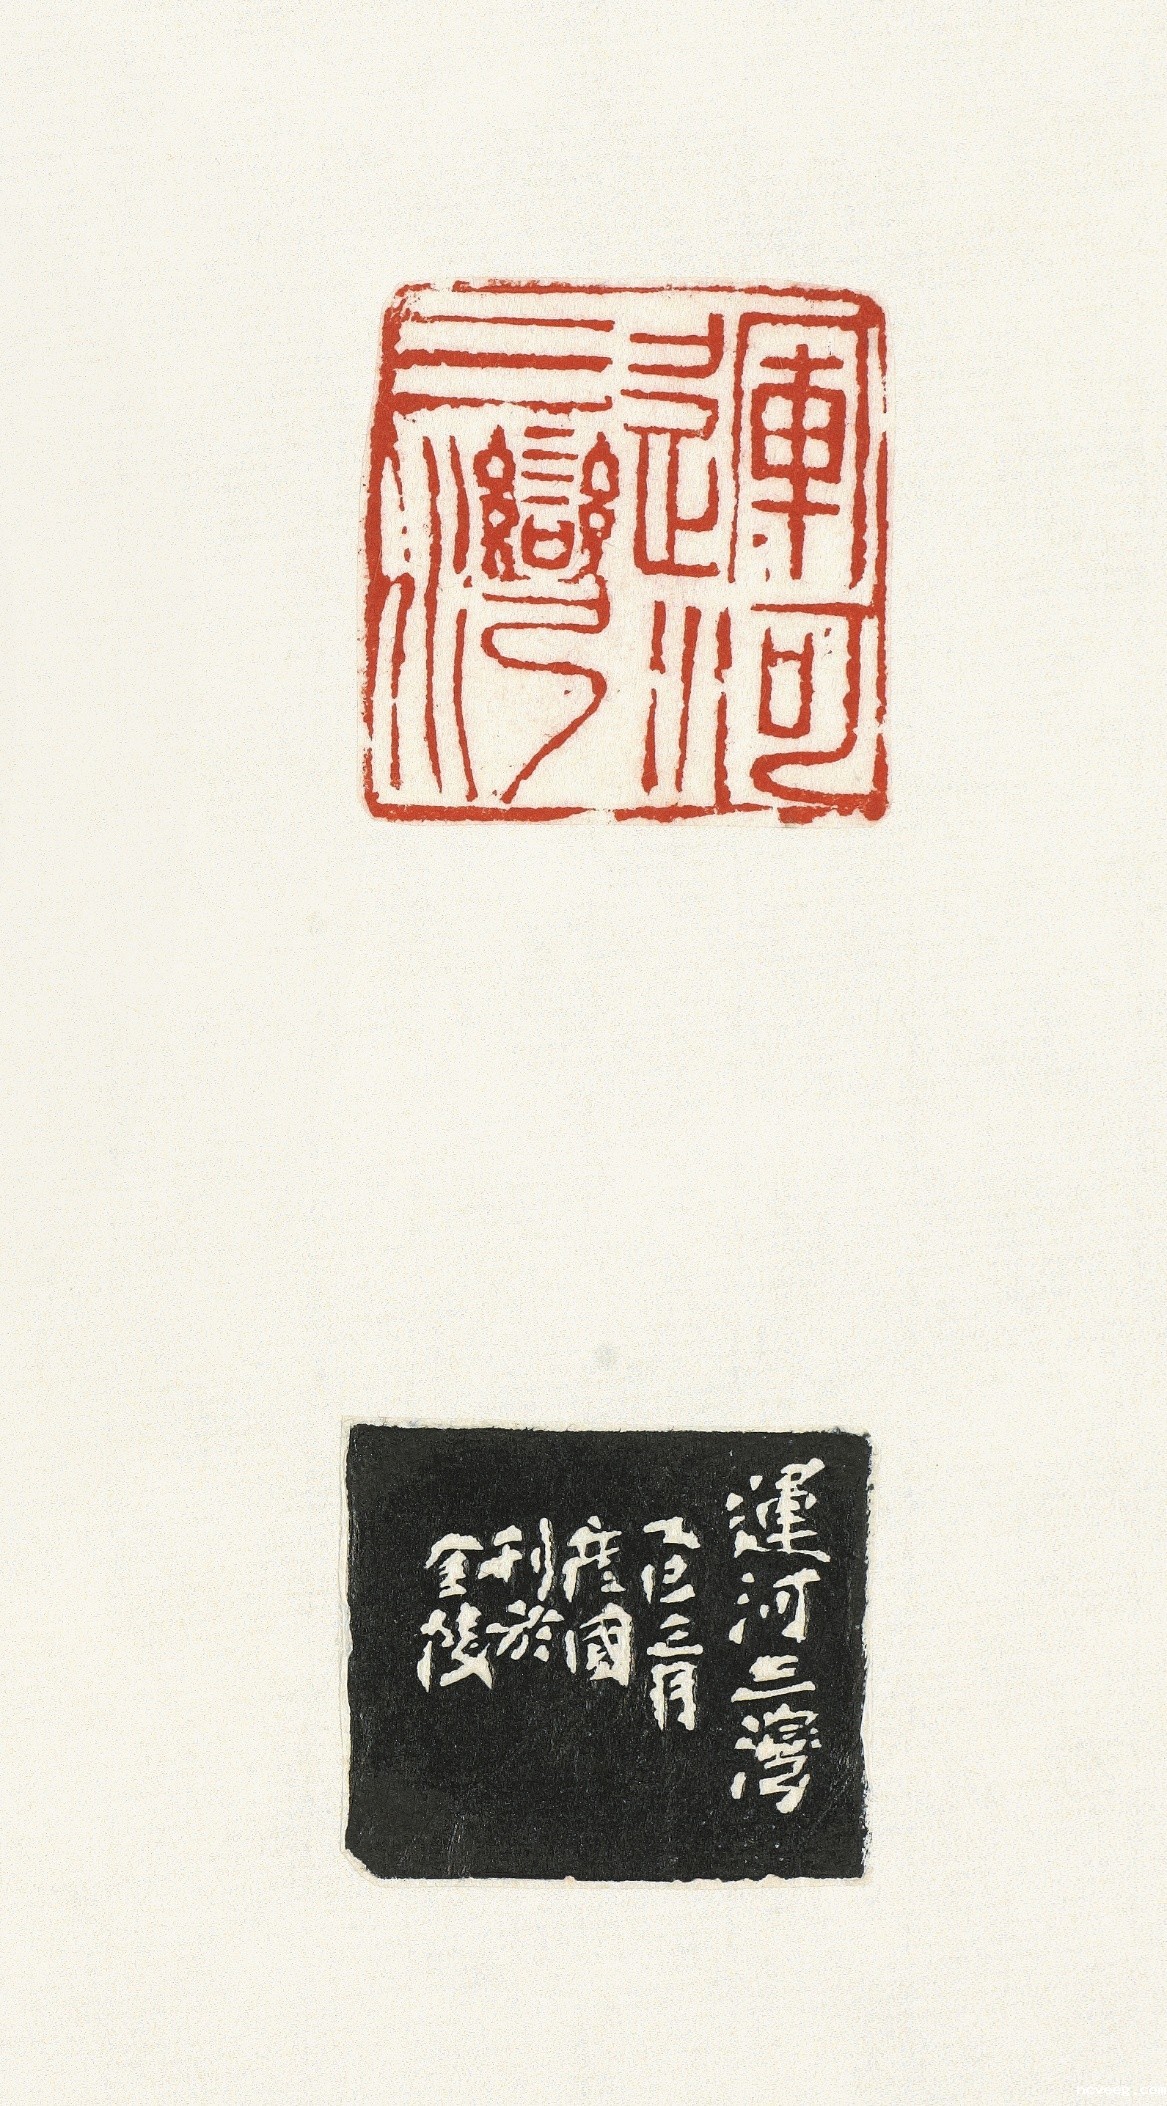 運河三灣
運河三灣
乙巳三月
度國
刊於
金陵